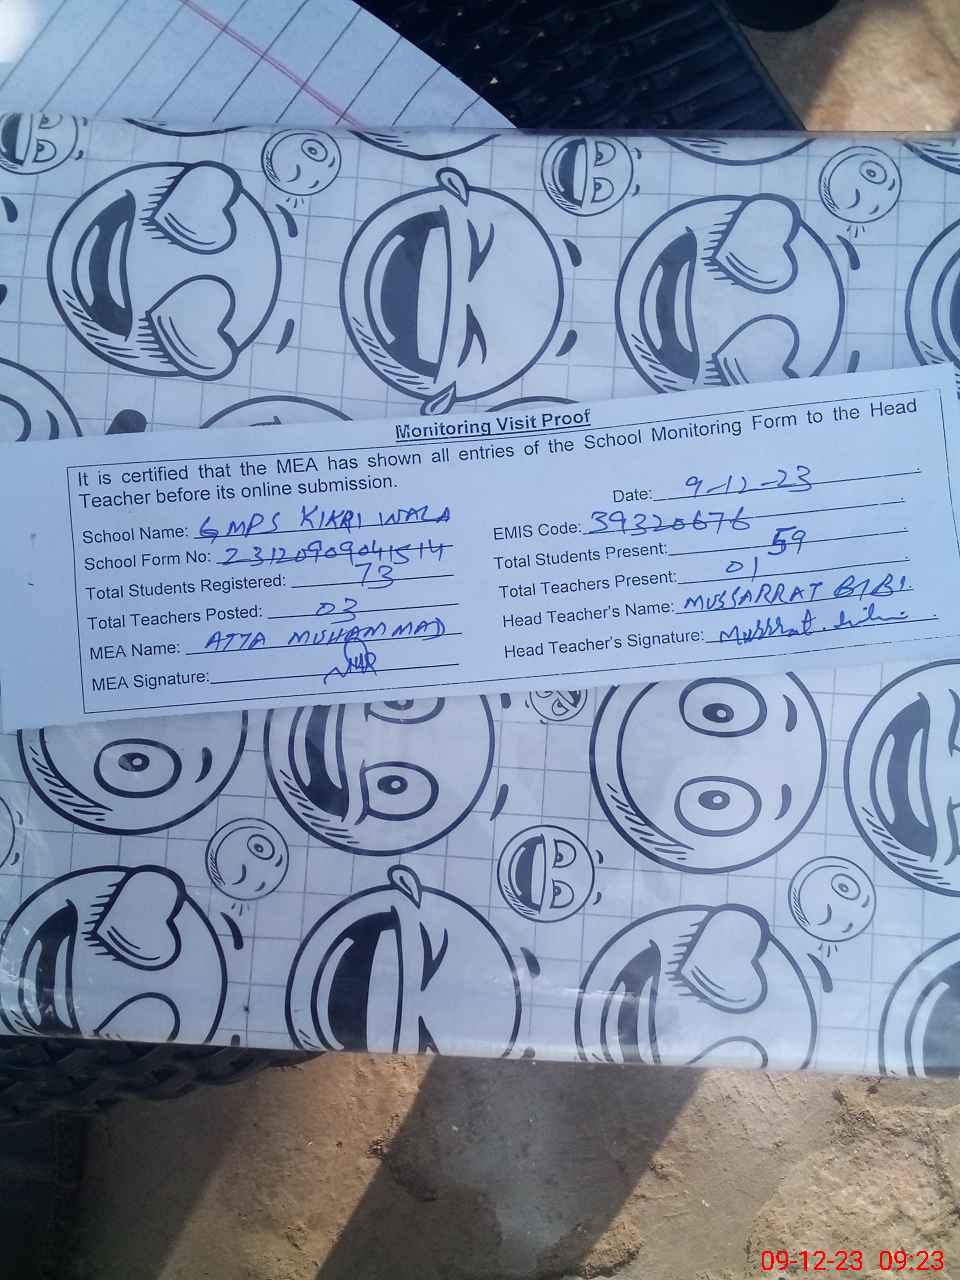 Monitoring Visit Proof
It is certified that the MEA has shown all entries of the School Monitoring Form to the Head
Teacher before its online submission.
Date: 9-12-23
School Name: GMPS KIKRI WALA
EMIS Code: 39320676
School Form No: 23120909041514
Total Students Present: 59
Total Students Registered: 73
Total Teachers Present: 01
Total Teachers Posted: 03
Head Teacher's Name: MUSSARRAT BIBI.
MEA Name: ATTA MUHAMMAD
Head Teacher's Signature: Mussrat. bibi
MEA Signature:
09-12-23 09:23